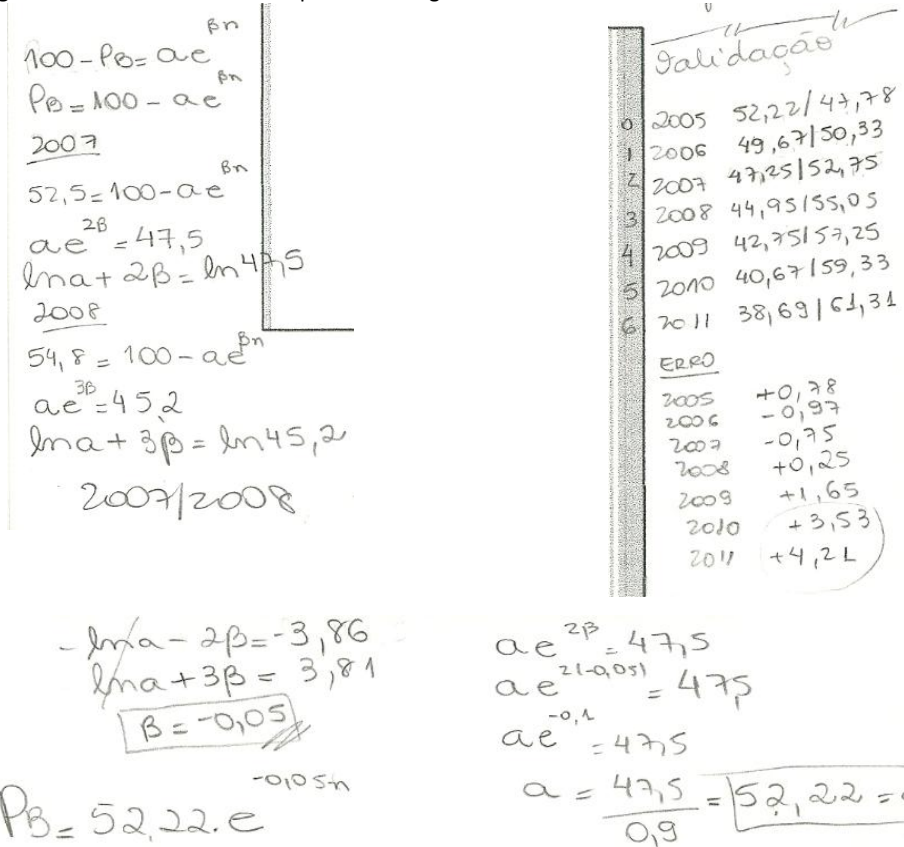 100 - PB = ae^βn
PB = 100 - ae^βn
2007
52,5 = 100 - ae^βn
ae^2β = 47,5
lna + 2β = ln 47,5
2008
54,8 = 100 - ae^βn
ae^3β = 45,2
lna + 3β = ln 45,2
2007/2008
Validação
0 2005 52,22/47,78
1 2006 49,67/50,33
2 2007 47,25/52,75
3 2008 44,95/55,05
4 2009 42,75/57,25
5 2010 40,67/59,33
6 2011 38,69/61,31
ERRO
2005 +0,78
2006 -0,97
2007 -0,75
2008 +0,25
2009 +1,65
2010 +3,53
2011 +4,21
- lna - 2β = -3,86
lna + 3β = 3,81
β = -0,05
PB = 52,22.e^-0,05n
ae^2β = 47,5
ae^2(-0,05) = 47,5
ae^-0,1 = 47,5
a = 47,5/0,9 = 52,22 =